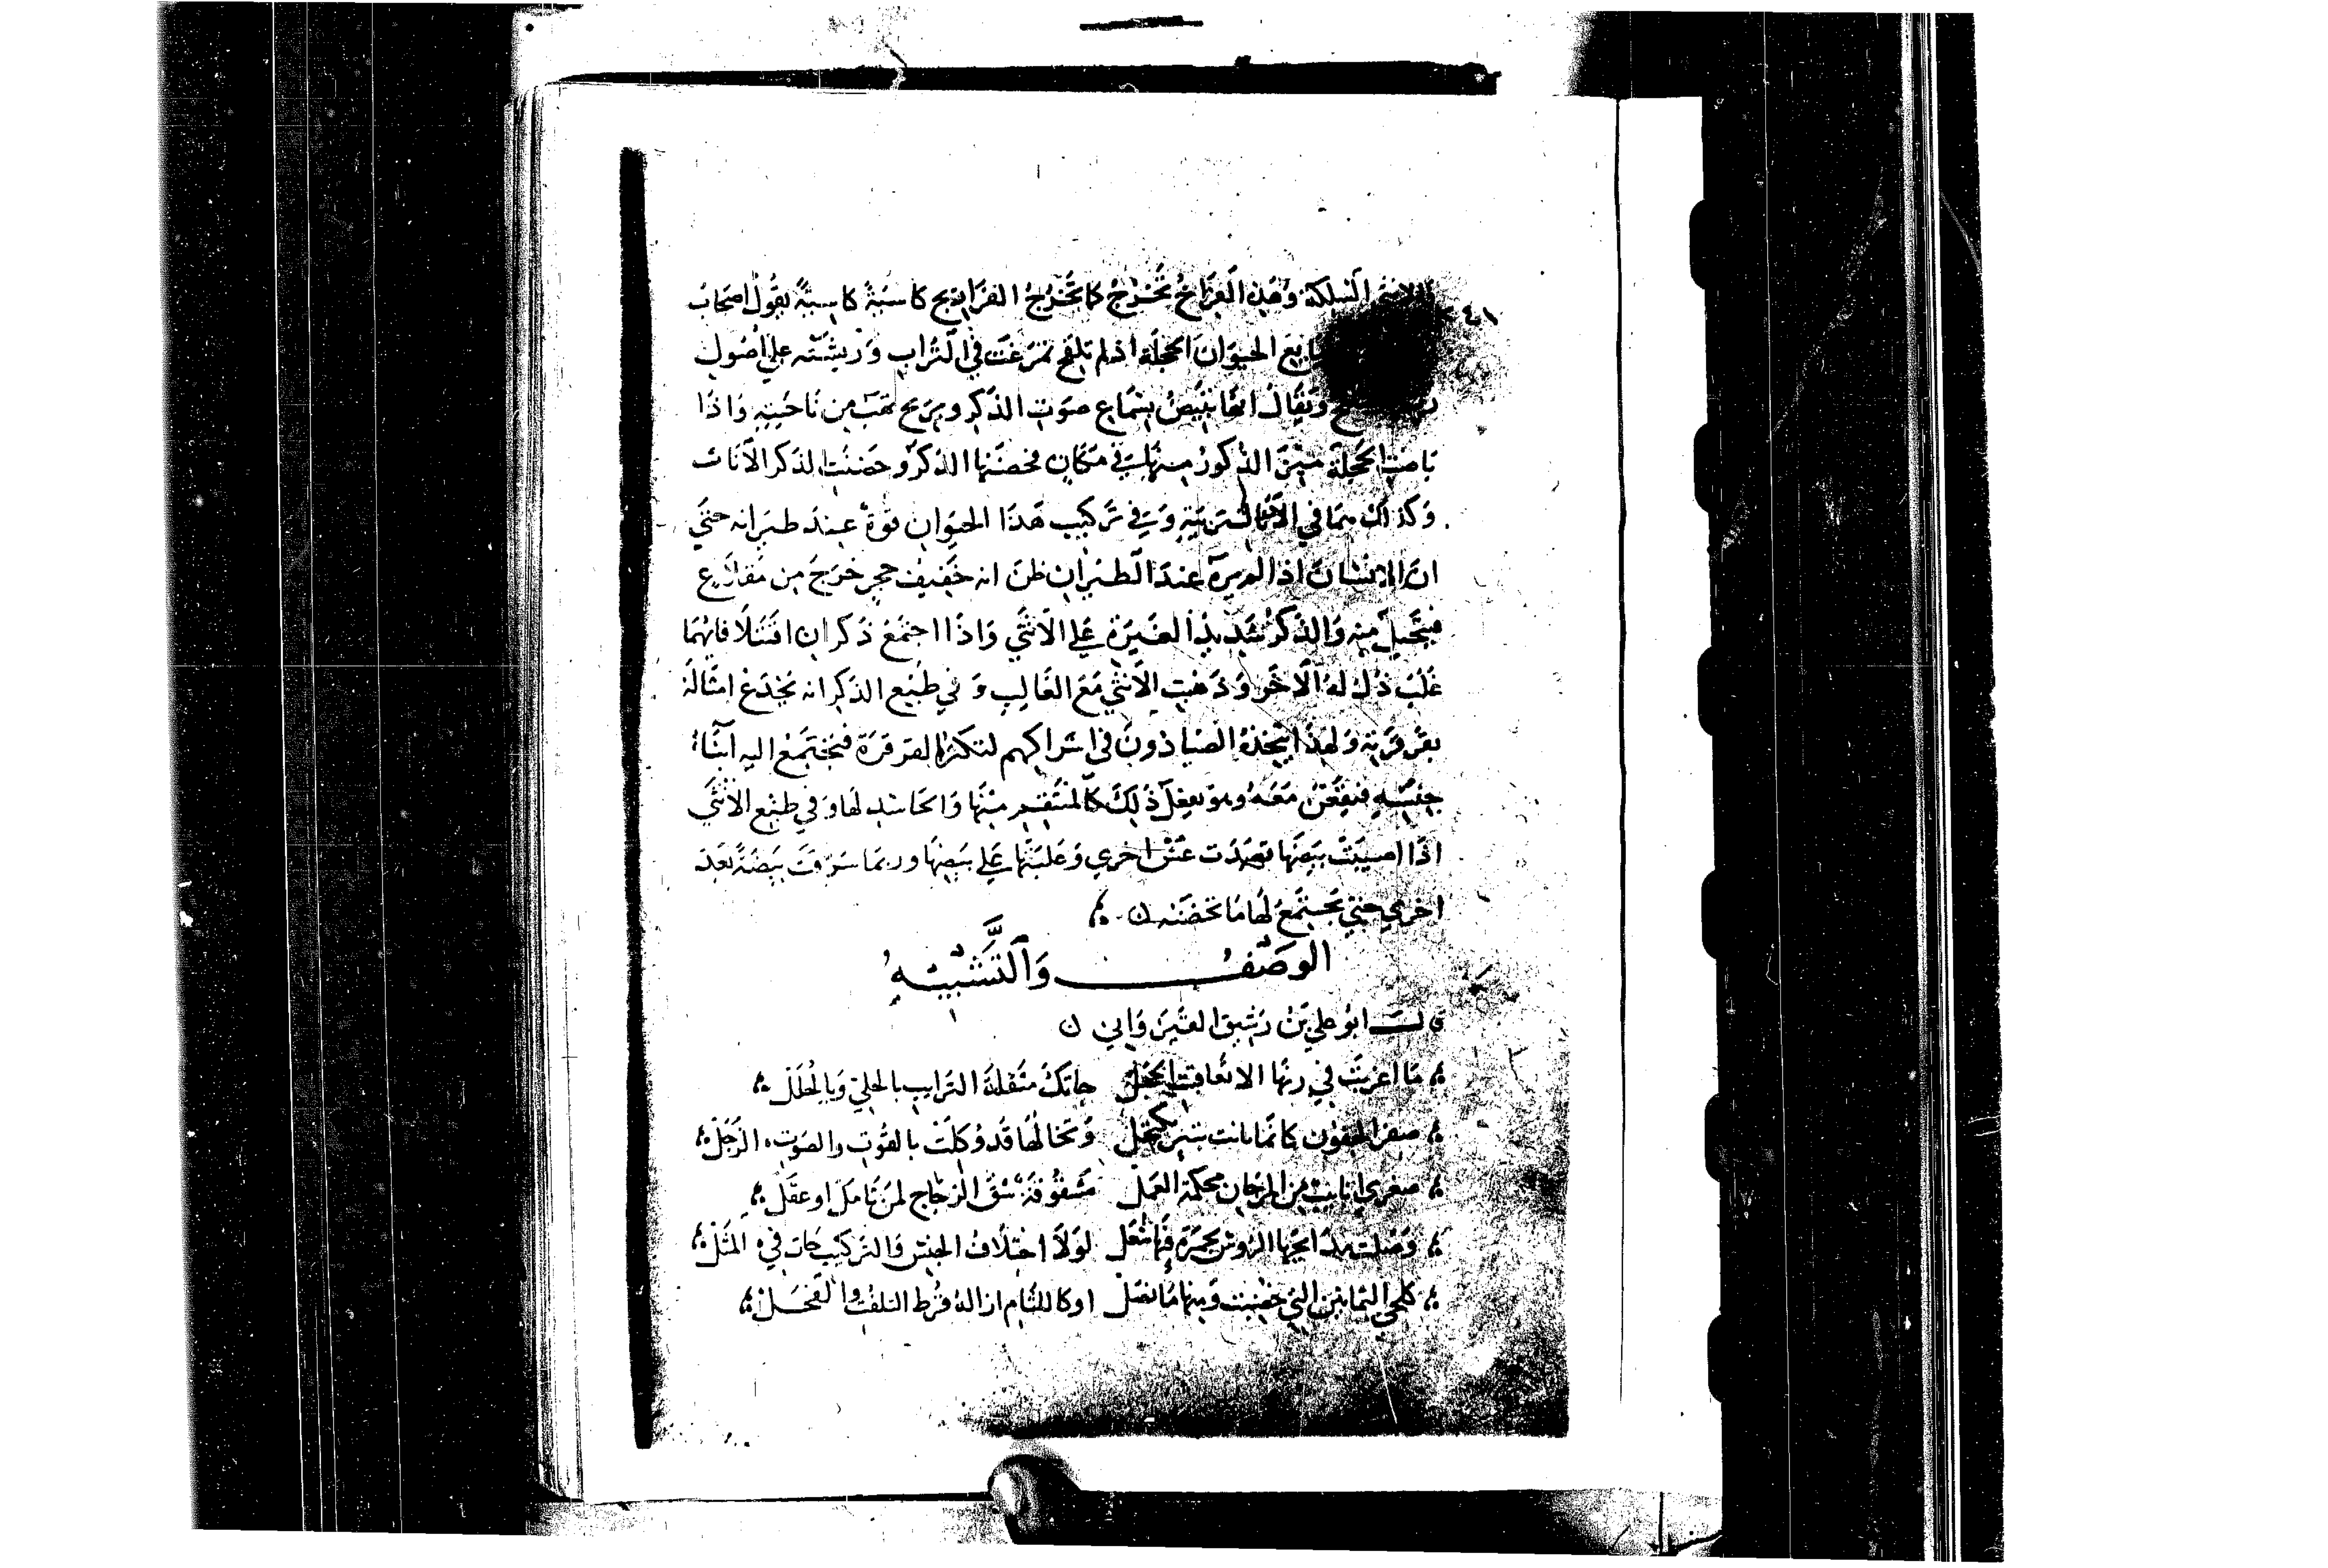 والانثى السلكة وهذه الفراخ تخرج كما تخرج الفراريج كاسية كاسبة يقول اصحاب
٤١
طبايع الحيوان الحجلة اذا لم تلقح تمرغت في التراب ورشته علي اصول
ويقال انها تبيض بسماع صوت الذكر وبريح تهب من ناحيته واذا
باضت الحجلة ميز الذكور منها في مكان فحضنها الذكر وحضنت الذكر الاناث
وكذلك هما في التربية وفي تركيب هذا الحيوان قوة عند طيرانه حتي
ان الانسان اذا لم يره عند الطيران ظن انه خفيف حجر خرج من مقلاع
منه والذكر شديد الغيرة علي الانثي واذا اجتمع ذكران اقتتلا فايهما
غلب ذل له الاخر وذهبت الانثي مع الغالب وفي طبع الذكر انه يخدع امثاله
بقرقرته ولهذا يتخذه الصيادون في اشراكهم لتكثر القرقرة فتجتمع اليه ابناء
جنسه فيقعن معه وهو يفعل ذلك كالمنتقم منها والحاسد لها وفي طبع الانثي
اذا اصيبت بيضها قصدت عش اخري وغلبتها علي بيضها وربما سرقت بيضة بعد
اخري حتي تجتمع لها ما تحضنه ن
الوصف والتشبيه
قال ابو علي بن رشيق القيرواني ن
ما اغربت في زيها الا يعاقيب الحجل جاتك مثقلة الترايب بالحلي وبالحلل
صفر الجفون كانما باتت بتبر تكتحل وتخالها قد وكلت بالقوت والصوت الزجل
صغري انابيب من المرجان محكمة العمل مشقوقة شق الزجاج لمن تامل او عقل
وصلت الروس بحمرة فيها شعل لولا اختلاف الجنس والتركيب جات في المثل
كلحي الثمانين التي خضبت ومنها ما نصل او كاللثام ازاله فرط التلفت والخجل